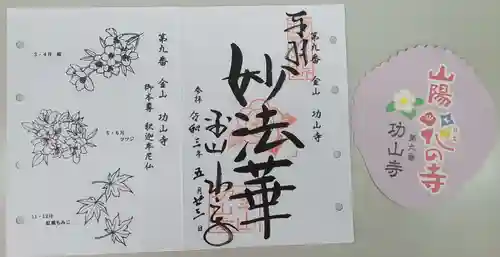 3・4月 桜
5・6月
ツツジ
11・12月
紅葉もみじ
第九番 金山 功山寺
御本尊 釈迦牟尼仏
第九番 金山 功山寺
妙法華
参拝 令和三年 五月廿三日
山陽花の寺
第九番
功山寺